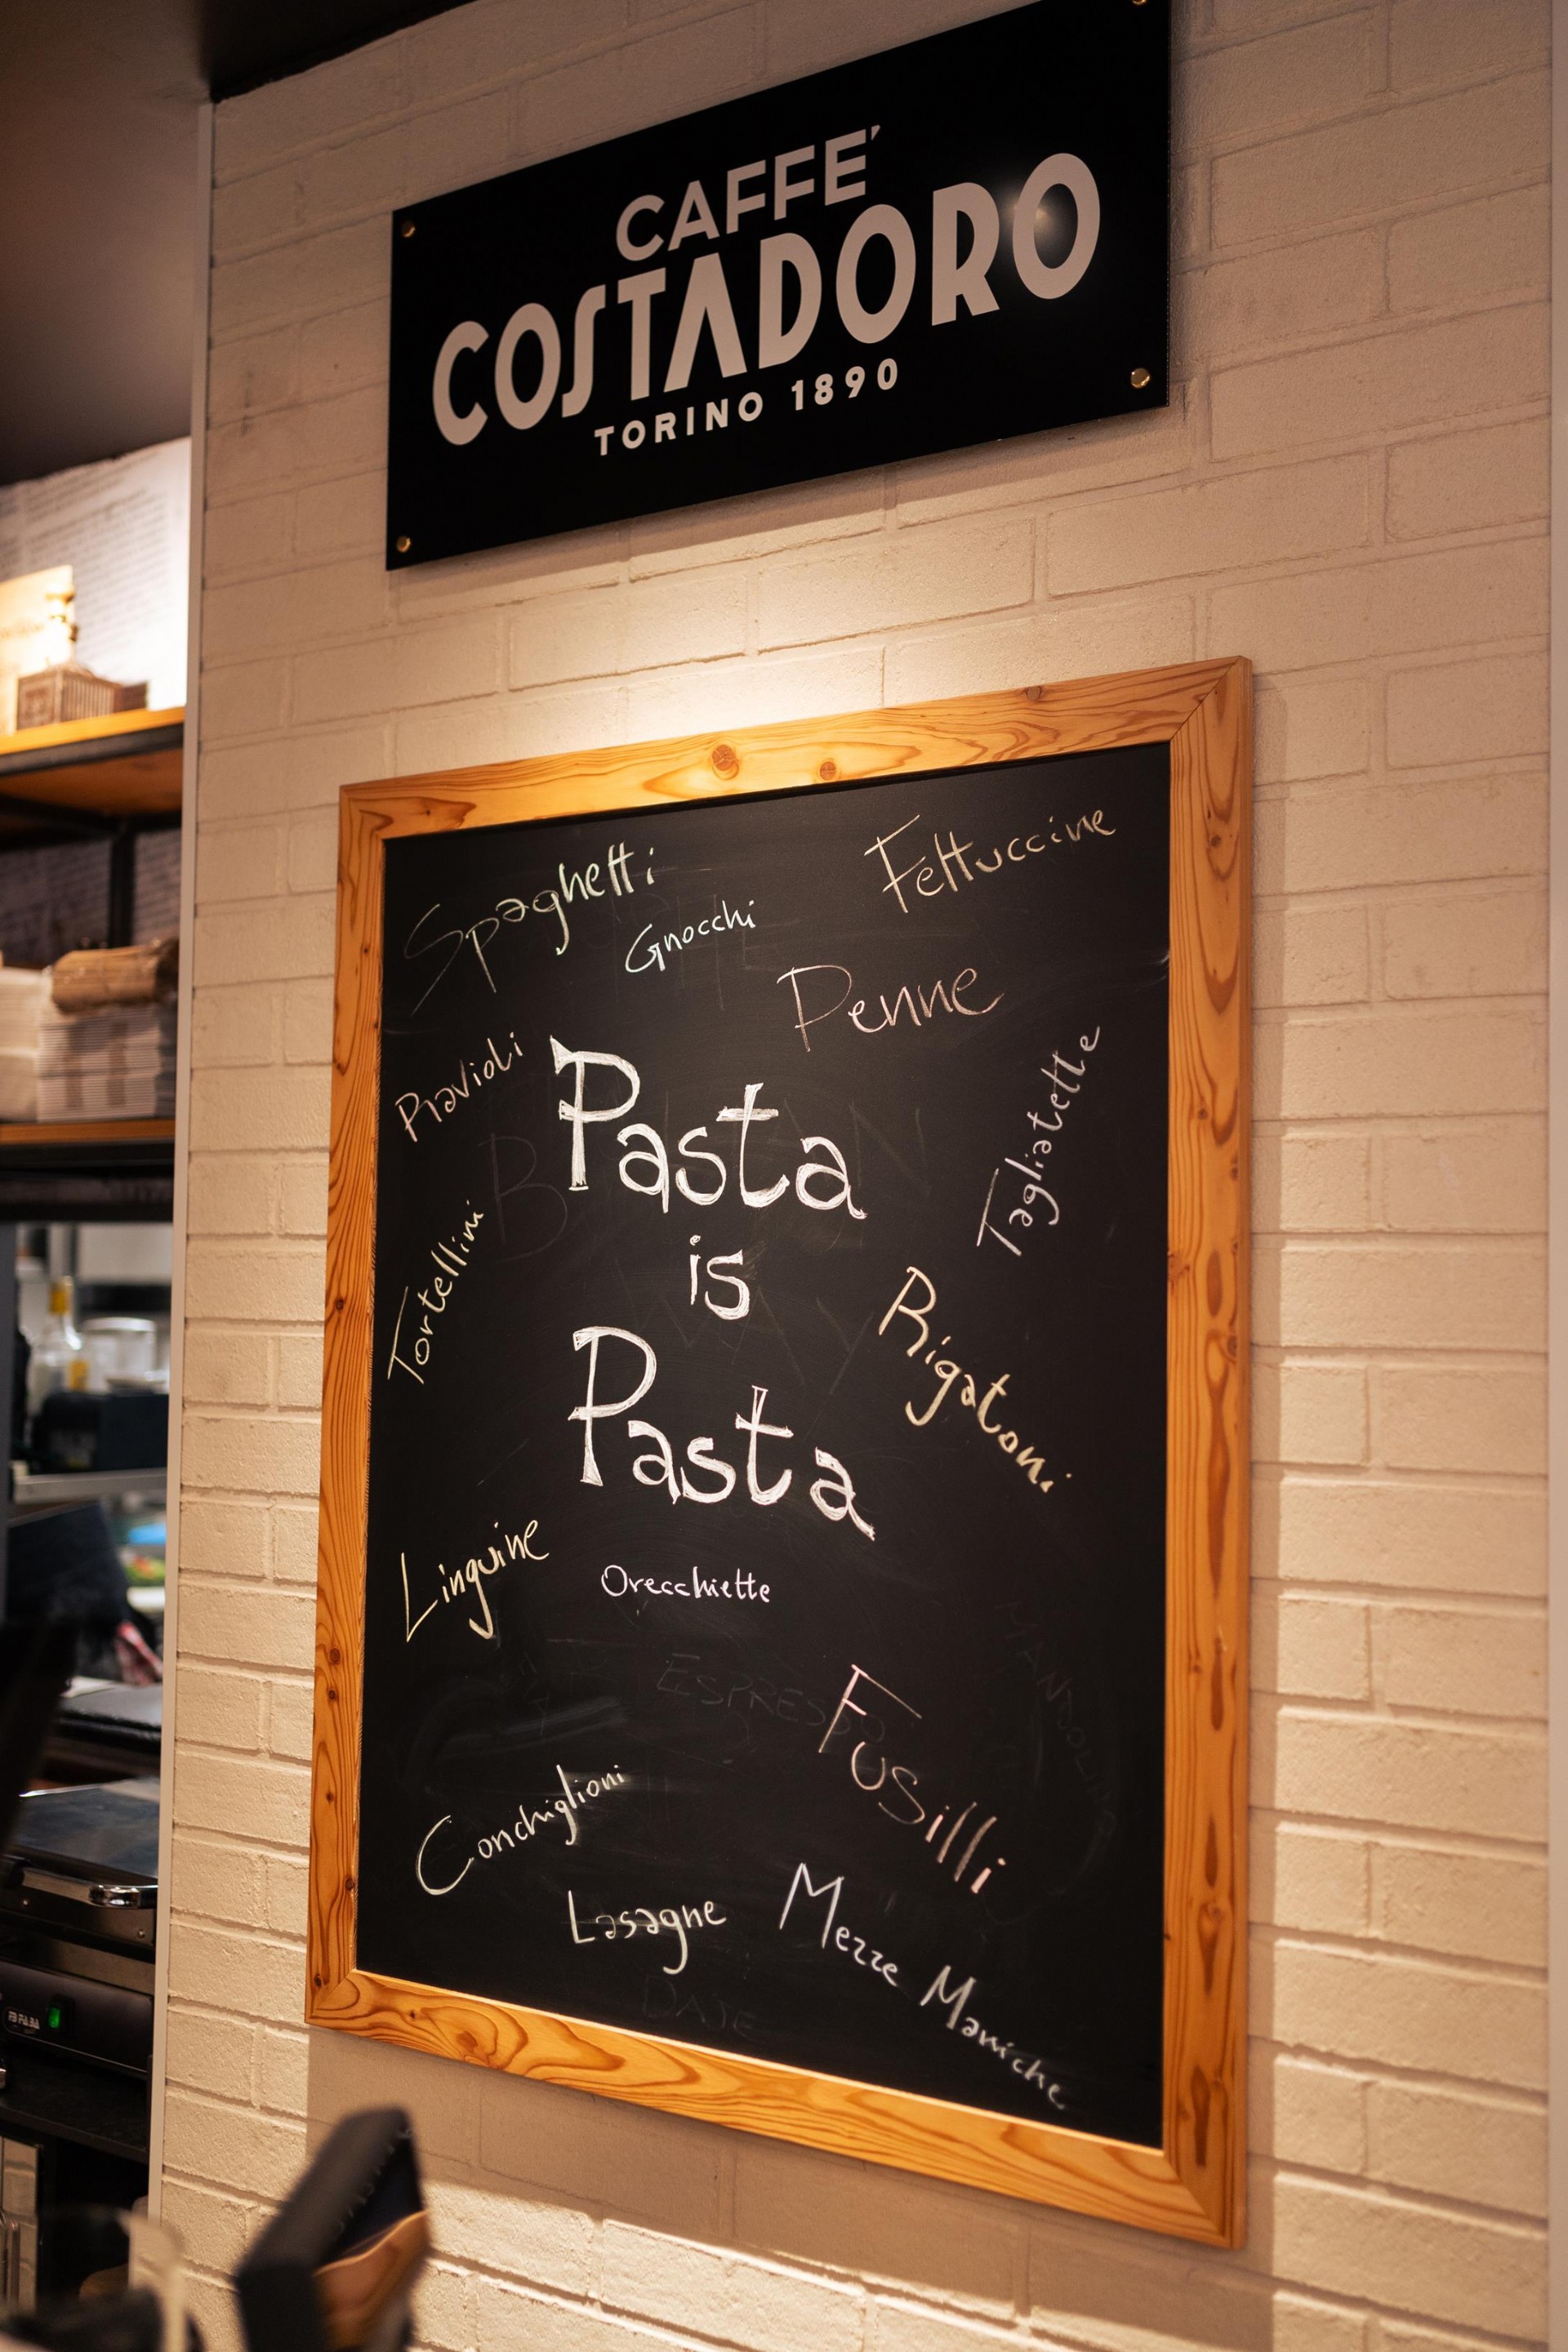 CAFFE'
COSTADORO
TORINO 1890
Spaghetti
Fettuccine
Gnocchi
Penne
Ravioli
Tagliatelle
Pasta
is
Pasta
Tortellini
Rigatoni
Linguine
Orecchiette
ESPRESSO
Fusilli
Conchiglioni
Lasagne
Mezze Maniche